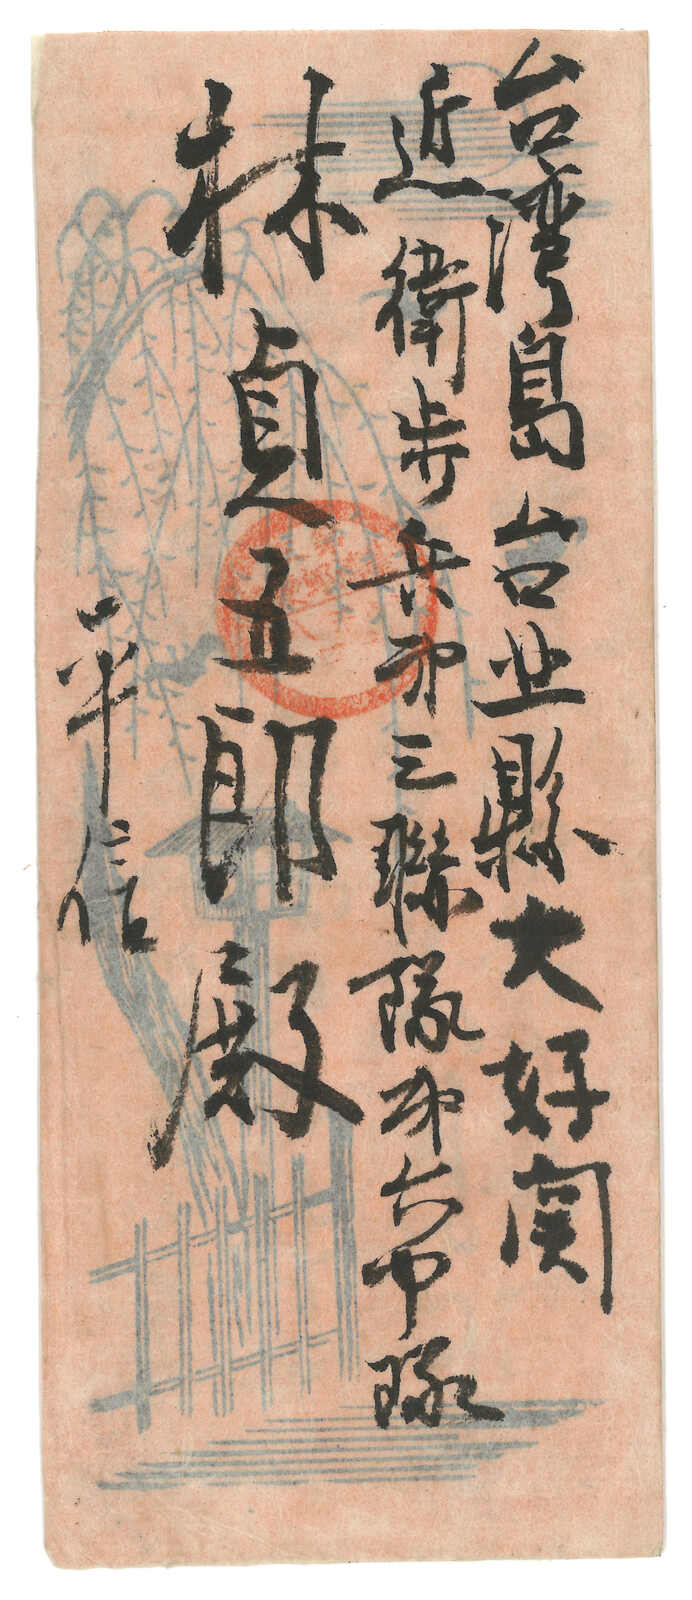 台湾島台北縣大好関
近衛歩兵第三聯隊第六中隊
林貞五郎殿
平信